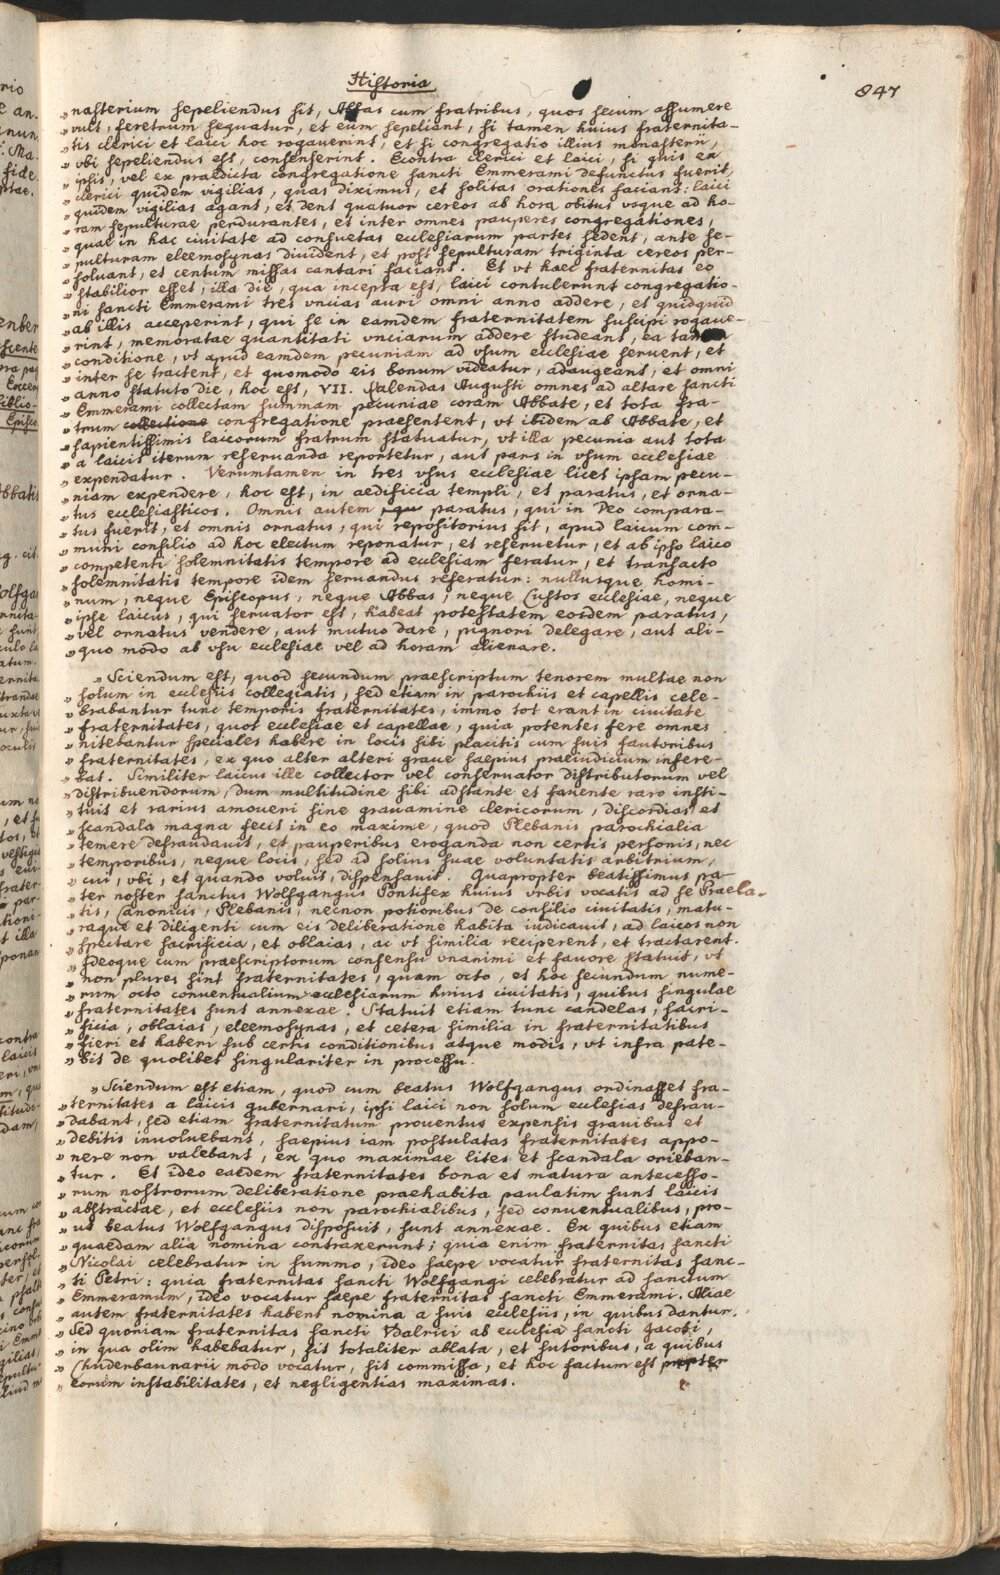 Historia
847
„nasterium sepeliendus sit, Abbas cum fratribus, quos secum assumere
„vult, feretrum sequatur, et eum sepeliant, si tamen huius fraternita-
„tis clerici et laici hoc rogauerint, et si congregatio illius monasterii,
„vbi sepeliendus est, consenserint. Econtra clerici et laici, si quis ex
„ipsis, vel ex praedicta congregatione sancti Emmerami defunctus fuerit,
„clerici quidem vigilias, quas diximus, et solitas orationes faciant: laici
„quidem vigilias agant, et dent quatuor cereos ab hora obitus vsque ad ho-
„ram sepulturae perdurantes, et inter omnes pauperes congregationes,
„quae in hac ciuitate ad consuetas ecclesiarum partes sedent, ante se-
„pulturam eleemosynas diuident, et post sepulturam triginta cereos per-
„soluant, et centum missas cantari faciant. Et vt haec fraternitas eo
„stabilior esset, illa die, qua incepta est, laici contulerunt congregatio-
„ni sancti Emmerami tres vncias auri omni anno addere, et quidquid
„ab illis acceperint, qui se in eamdem fraternitatem suscipi rogaue-
„rint, memoratae quantitati vnciarum addere studeant, ea tamen
„conditione, vt apud eamdem pecuniam ad vsum ecclesiae seruent, et
„inter se tractent, et quomodo eis bonum videatur, adaugeant, et omni
„anno statuto die, hoc est, VII. Kalendas Augusti omnes ad altare sancti
„Emmerami collectam summam pecuniae coram Abbate, et tota fra-
„trum collectione congregatione praesentent, vt ibidem ab Abbate, et
„sapientissimis laicorum fratrum statuatur, vt illa pecunia aut tota
„a laicis iterum reseruanda reportetur, aut pars in vsum ecclesiae
„expendatur. Verumtamen in tres vsus ecclesiae licet ipsam pecu-
„niam expendere, hoc est, in aedificia templi, et paratus, et orna-
„tus ecclesiasticos. Omnis autem qui paratus, qui in Deo compara-
„tus fuerit, et omnis ornatus, qui repositorius sit, apud laicum com-
„muni consilio ad hoc electum reponatur, et reseruetur, et ab ipso laico
„competenti solemnitatis tempore ad ecclesiam feratur, et transacto
„solemnitatis tempore idem seruandus referatur: nullusque homi-
„num, neque Episcopus, neque Abbas, neque Custos ecclesiae, neque
„ipse laicus, qui seruator est, habeat potestatem eosdem paratus,
„vel ornatus vendere, aut mutuo dare, pignori delegare, aut ali-
„quo modo ab vsu ecclesiae vel ad horam alienare.
„Sciendum est, quod secundum praescriptum tenorem multae non
„solum in ecclesiis collegiatis, sed etiam in parochiis et capellis cele-
„brabantur tunc temporis fraternitates, immo tot erant in ciuitate
„fraternitates, quot ecclesiae et capellae, quia potentes fere omnes
„nitebantur speciales habere in locis sibi placitis cum suis fautoribus
„fraternitates, ex quo alter alteri graue saepius praeiudicium infere-
„bat. Similiter laicus ille collector vel conseruator distributorum vel
„distribuendorum, dum multitudine sibi adstante et fauente raro insti-
„tuit et rarius amoueri sine grauamine clericorum, discordias et
„scandala magna fecit in eo maxime, quod Plebanis parochialia
„temere defraudauit, et pauperibus eroganda non certis personis, nec
„temporibus, neque locis, sed ad solius suae voluntatis arbitrium,
„cui, vbi, et quando voluit, dispensauit. Quapropter beatissimus pa-
„ter noster sanctus Wolfgangus Pontifex huius vrbis vocatis ad se Praela-
„tis, Canonicis, Plebanis, necnon potioribus de consilio ciuitatis, matu-
„raque et diligenti cum eis deliberatione habita iudicauit, ad laicos non
„spectare sacrificia, et oblaias, ac vt similia reciperent, et tractarent.
„Ideoque cum praescriptorum consensu vnanimi et fauore statuit, vt
„non plures sint fraternitates, quam octo, et hoc secundum nume-
„rum octo conuentualium ecclesiarum huius ciuitatis, quibus singulae
„fraternitates sunt annexae. Statuit etiam tunc candelas, sacri-
„ficia, oblaias, eleemosynas, et cetera similia in fraternitatibus
„fieri et haberi sub certis conditionibus atque modis, vt infra pate-
„bit de quolibet singulariter in processu.
„Sciendum est etiam, quod cum beatus Wolfgangus ordinasset fra-
„ternitates a laicis gubernari, ipsi laici non solum ecclesias defrau-
„dabant, sed etiam fraternitatum prouentus expensis grauibus et
„debitis inuoluebant, saepius iam postulatas fraternitates appo-
„nere non valebant, ex quo maximae lites et scandala orieban-
„tur. Et ideo eaedem fraternitates bona et matura antecesso-
„rum nostrorum deliberatione praehabita paulatim sunt laicis
„abstractae, et ecclesiis non parochialibus, sed conuentualibus, pro-
„ut beatus Wolfgangus disposuit, sunt annexae. Ex quibus etiam
„quaedam alia nomina contraxerunt; quia enim fraternitas sancti
„Nicolai celebratur in summo, ideo saepe vocatur fraternitas sanc-
„ti Petri: quia fraternitas sancti Wolfgangi celebratur ad sanctum
„Emmeramum, ideo vocatur saepe fraternitas sancti Emmerami. Aliae
„autem fraternitates habent nomina a suis ecclesiis, in quibus dantur.
„Sed quoniam fraternitas sancti Vdalrici ab ecclesia sancti Jacobi,
„in qua olim habebatur, sit totaliter ablata, et sutoribus, a quibus
„Chuderbaunarii modo vocatur, sit commissa, et hoc factum est propter
„eorum instabilitates, et negligentias maximas.